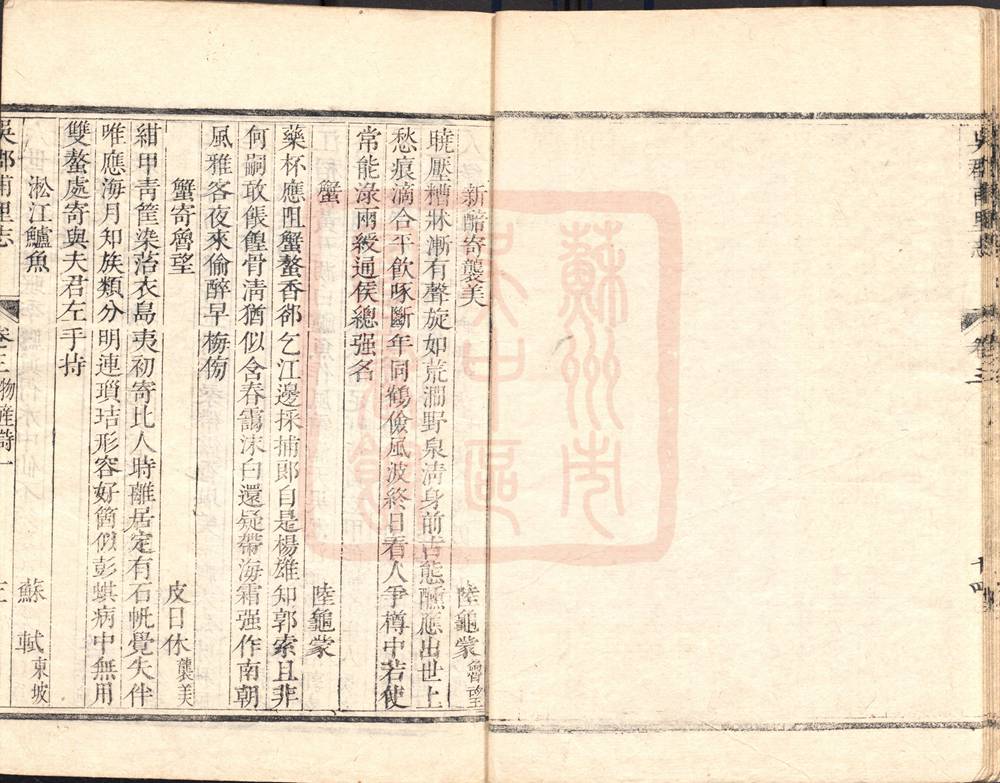 吳郡甫里志 卷三 十四
蘇州市
吳中區
圖書館
新醅寄襲美 陸龜蒙魯望
曉壓糟牀漸有聲旋如荒澗野泉淸身前古態醺應出世上
愁痕滴合平飮啄斷年同鶴儉風波終日看人爭樽中若使
常能淥兩綬通侯總强名
蟹 陸龜蒙
藥杯應阻蟹螯香郤乞江邊採捕郎自是楊雄知郭索且非
何嗣敢餦餭骨淸猶似含春靄沫白還疑帶海霜强作南朝
風雅客夜來偷醉早梅傍
蟹寄魯望 皮日休襲美
紺甲靑筐染菭衣島夷初寄北人時離居定有石帆覺失伴
唯應海月知族類分明連瑣形容好箇似彭蜞病中無用
雙螯處寄與夫君左手持
淞江鱸魚 蘇軾東坡
吳郡甫里志 卷三物產詩一